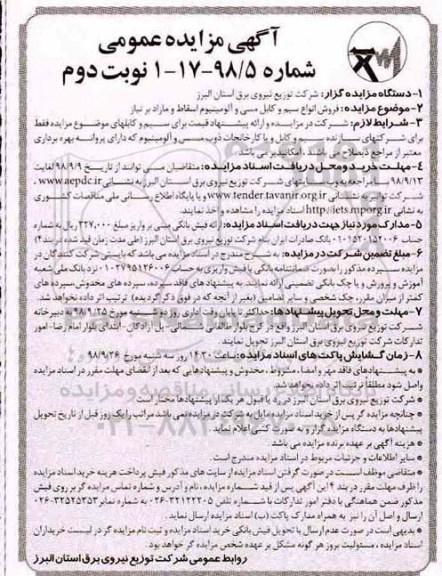 آگهی مزایده عمومی
شماره ۹۸/۵-۱۷-۱ نوبت دوم
۱-دستگاه مزایده گزار: شرکت توزیع نیروی برق استان البرز
۲-موضوع مزایده: فروش انواع سیم و کابل مسی و آلومینیوم اسقاط و مازاد بر نیاز
۳-شرایط لازم: شرکت در مزایده و ارائه پیشنهاد قیمت برای سیم و کابلهای موضوع مزایده فقط
برای شرکتهای سازنده سیم و کابل و یا کارخانجات ذوب مس و آلومینیوم که دارای پروانه بهره برداری
معتبر از مراجع ذیصلاح می باشند امکانپذیر می باشد.
۴-مهلت خرید و محل دریافت اسناد مزایده: متقاضیان می توانند از تاریخ ۹۸/۹/۹ لغایت
۹۸/۹/۱۳ با مراجعه به وب سایتهای شرکت توزیع نیروی برق استان البرز به نشانی www.aepdc.ir ،
به نشانی www.tender.tavanir.org.ir و یا پایگاه اطلاع رسانی ملی مناقصات کشوری
به نشانی http://iets.mporg.ir اسناد مزایده را مشاهده و اخذ نمایند.
۵-مدارک مورد نیاز جهت دریافت اسناد مزایده: ارائه فیش بانکی مبنی بر واریز مبلغ ۳۲۷,۰۰۰ ریال به شماره
حساب بانک صادرات ایران بنام شرکت توزیع نیروی برق استان البرز (طی مدت زمان قید شده در بند ۴)
۶-مبلغ تضمین شرکت در مزایده: به شرح مندرج در اسناد مزایده می باشد که بایستی شرکت کنندگان در
مزایده سپرده مذکور را بصورت ضمانتنامه بانکی یا فیش واریزی به حساب نزد بانک ملی شعبه
آموزش و پرورش و یا چک بانکی تضمینی ارائه نمایند. به پیشنهادهای فاقد سپرده، سپرده های مخدوش، سپرده های
کمتر از میزان مقرر، چک شخصی و سایر تضامین (بغیر از آنچه که در فوق ذکر گردیده) ترتیب اثر داده نخواهد شد.
۷-مهلت و محل تحویل پیشنهادها: حداکثر تا پایان وقت اداری روز دوشنبه مورخ ۹۸/۹/۲۵ به دبیرخانه
شرکت توزیع نیروی برق استان البرز واقع در کرج بلوار طالقانی شمالی - پل آزادگان - ابتدای بلوار امام رضا - امور
تدارکات شرکت توزیع نیروی برق استان البرز تحویل نمایند.
۸-زمان گشایش پاکت های اسناد مزایده: ساعت ۱۴:۳۰ روز سه شنبه مورخ ۹۸/۹/۲۶
* به پیشنهادهای فاقد مهر و امضاء، مشروط، مخدوش و پیشنهادهایی که بعد از انقضای مهلت مقرر در اسناد مزایده
واصل شود مطلقا ترتیب اثر داده نخواهد شد.
شرکت توزیع نیروی برق استان البرز در رد یا قبول هر یک از پیشنهادها مختار است
* چنانچه مزایده گر پس از خرید اسناد مزایده مایل به شرکت در مزایده نمی باشد مراتب را یک روز قبل از تاریخ تحویل
پیشنهادها به دستگاه مزایده گزار و به صورت کتبی اعلام نماید.
* هزینه آگهی بر عهده برنده مزایده می باشد.
* سایر اطلاعات و جزئیات مربوط در اسناد مزایده مندرج است.
* متقاضی موظف است در صورت گرفتن اسناد مزایده از سایت های مذکور فیش پرداخت هزینه خرید اسناد مزایده
را ظرف مهلت مقرر در بند ۴ این آگهی پس از قید شماره مزایده، نام و آدرس و شماره تماس مزایده گر بر روی فیش
مذکور ضمن هماهنگی با دفتر امور تدارکات با شماره تلفن ۳۲۱۲۲۲۰۵-۰۲۶ به شماره نمابر ۳۲۵۲۵۳۵۳-۰۲۶
ارسال و اصل آن را نیز به همراه مدارک پاکت (ب) اسناد مزایده ارسال نماید.
* بدیهی است در صورت عدم ارسال یا تحویل فیش بانکی خرید اسناد مزایده و ثبت نام مزایده گر در لیست خریداران
اسناد مزایده، مسئولیت بروز هر گونه مشکل بر عهده شخص مزایده گر خواهد بود.
روابط عمومی شرکت توزیع نیروی برق استان البرز